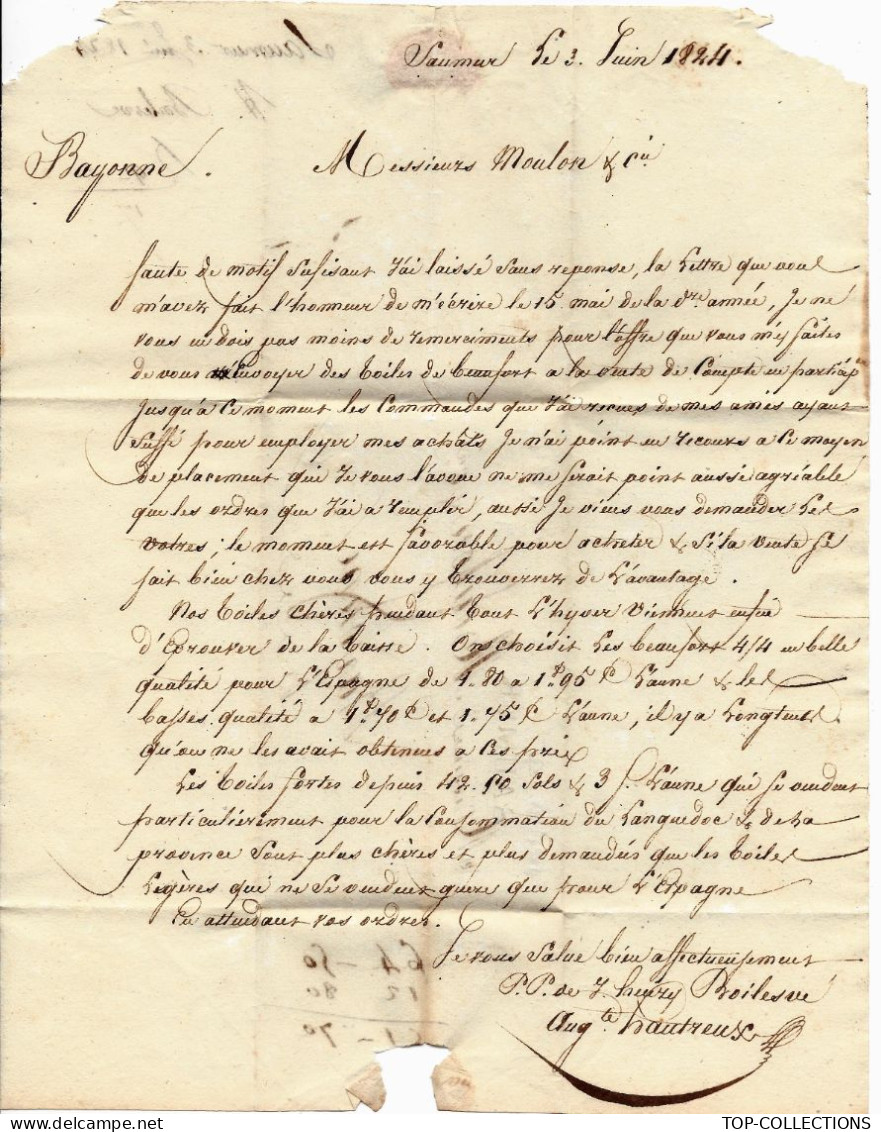 Saumur Le 3. Juin 1824.
Bayonne. Messieurs Moulon & Cie
faute de motif sufisant J'ai laissé sans reponse, la Lettre que vous
m'avez fait l'honneur de m'écrire le 15 mai de la dre. année, Je ne
vous en dois pas moins de remerciments pour l'offre que vous m'y faites
de vous envoyer des toiles de beaufort a la vente de Compte en particip
Jusqu'a ce moment les Commandes que J'ai recues de mes amis ayant
suffi pour employer mes achâts Je n'ai point eu recours a ce moyen
de placement qui Je vous l'avoue ne me serait point aussi agréable
que les ordres que J'ai a remplir, aussi Je viens vous demander Les
votres; le moment est favorable pour acheter & si la vente se
fait bien chez vous vous y trouverrez de L'avantage.
Nos toiles chères pendant tout L'hyver viennent enfin
d'Eprouver de la baisse. On choisit Les beaufort 4/4 en belle
qualité pour L'Espagne de 1.80 a 1f.95 C L'aune & les
basses qualité a 1f.70 C et 1.75 C L'aune, il y a Longtems
qu'on ne les avait obtenues a ces prix
Les toiles fortes depuis 42. 50 sols & 3 f. L'aune qui se vendent
particulièrement pour la Consommation du Languedoc & de La
province sont plus chères et plus demandées que les toiles
Legères qui ne se vendent guere que pour L'Espagne
En attendant vos ordres.
Je vous salue bien affectueusement
P.P. de J. henry Boilesve
Augte. hautreux
64 - 50
12 80
51 - 70
TOP-COLLECTIONS